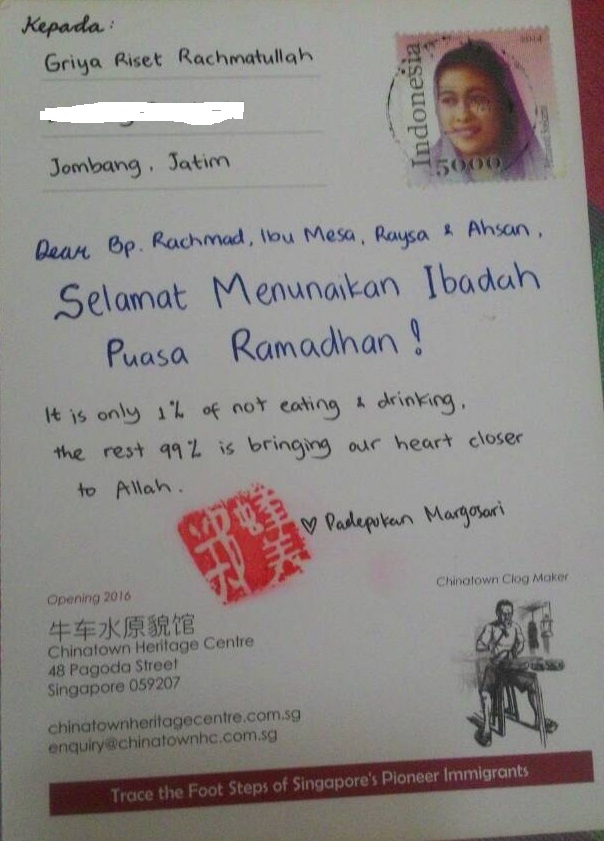 Kepada :
Griya Riset Rachmatullah
Jombang, Jatim
2014
Indonesia
5000
Dear Bp. Rachmad, Ibu Mesa, Raysa & Ahsan,
Selamat Menunaikan Ibadah
Puasa Ramadhan!
It is only 1% of not eating & drinking,
the rest 99% is bringing our heart closer
to Allah.
♡ Padepokan Margosari
Chinatown Clog Maker
Opening 2016
牛车水原貌馆
Chinatown Heritage Centre
48 Pagoda Street
Singapore 059207
chinatownheritagecentre.com.sg
enquiry@chinatownhc.com.sg
Trace the Foot Steps of Singapore's Pioneer Immigrants